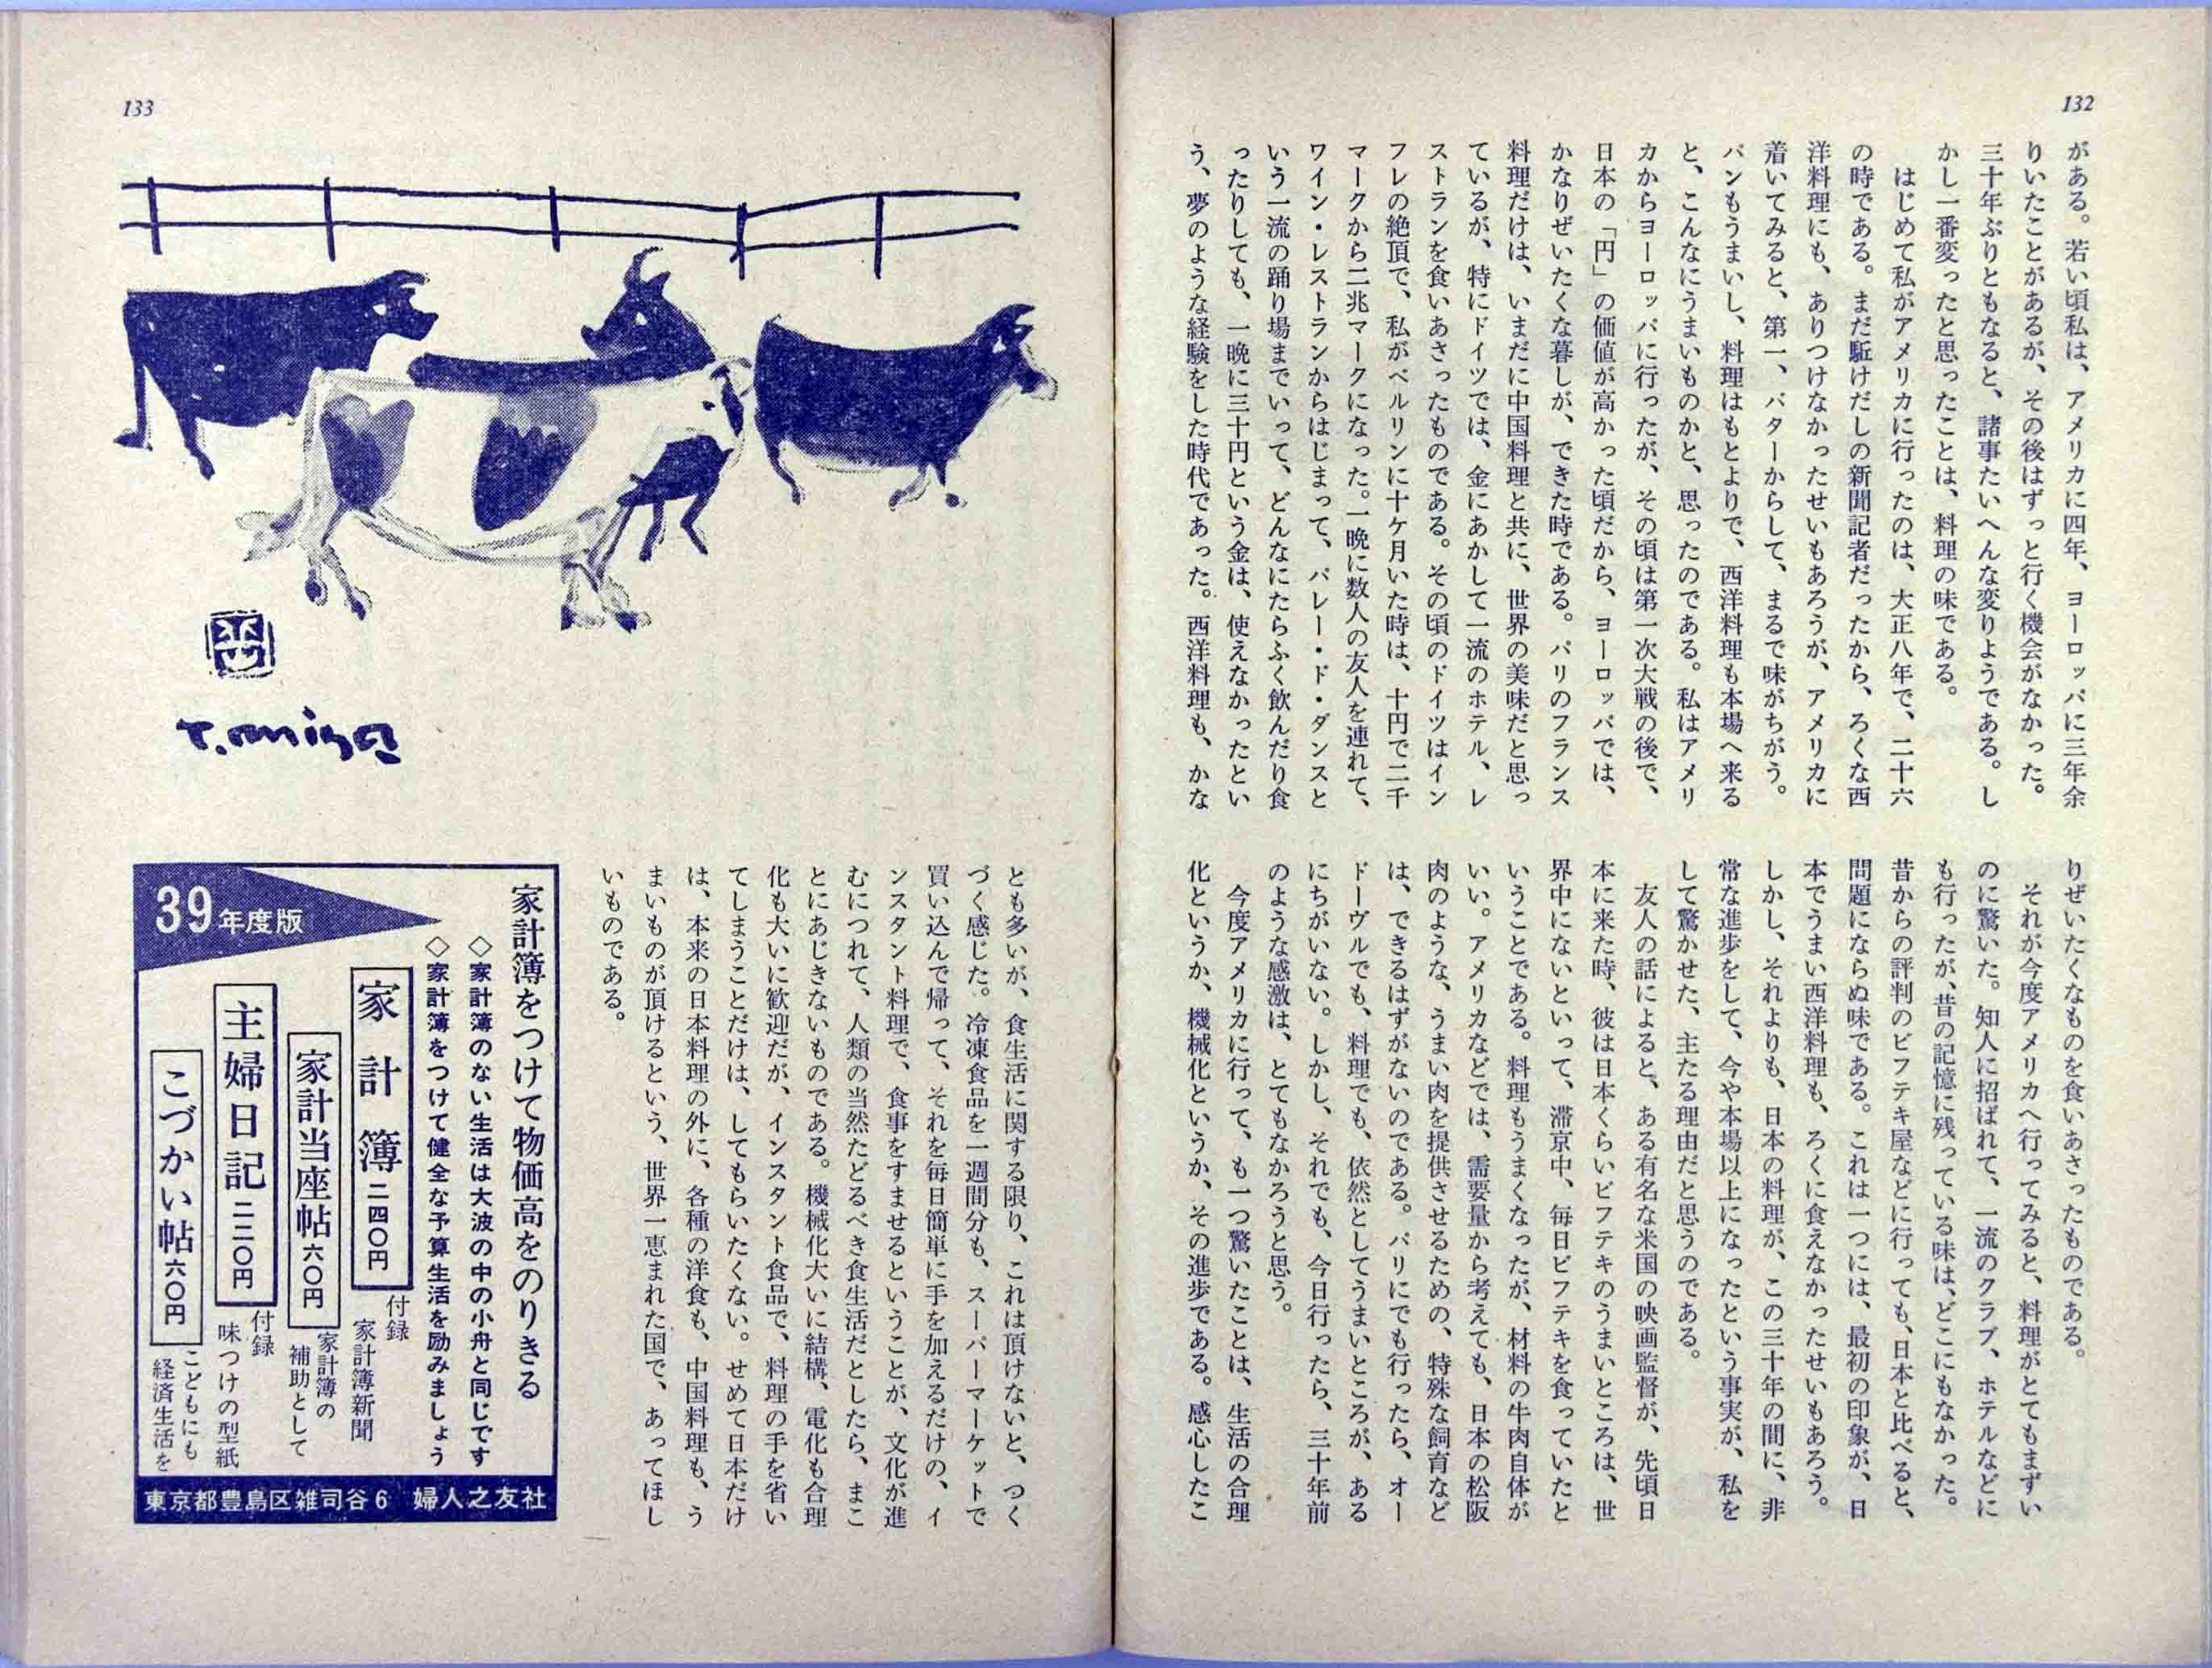 132
がある。若い頃私は、アメリカに四年、ヨーロッパに三年余
りいたことがあるが、その後はずっと行く機会がなかった。
三十年ぶりともなると、諸事たいへんな変りようである。し
かし一番変ったと思ったことは、料理の味である。
はじめて私がアメリカに行ったのは、大正八年で、二十六
の時である。まだ駈けだしの新聞記者だったから、ろくな西
洋料理にも、ありつけなかったせいもあろうが、アメリカに
着いてみると、第一、バターからして、まるで味がちがう。
パンもうまいし、料理はもとよりで、西洋料理も本場へ来る
と、こんなにうまいものかと、思ったのである。私はアメリ
カからヨーロッパに行ったが、その頃は第一次大戦の後で、
日本の「円」の価値が高かった頃だから、ヨーロッパでは、
かなりぜいたくな暮しが、できた時である。パリのフランス
料理だけは、いまだに中国料理と共に、世界の美味だと思っ
ているが、特にドイツでは、金にあかして一流のホテル、レ
ストランを食いあさったものである。その頃のドイツはイン
フレの絶頂で、私がベルリンに十ケ月いた時は、十円で二千
マークから二兆マークになった。一晩に数人の友人を連れて、
ワイン・レストランからはじまって、バレー・ド・ダンスと
いう一流の踊り場までいって、どんなにたらふく飲んだり食
ったりしても、一晩に三十円という金は、使えなかったとい
う、夢のような経験をした時代であった。西洋料理も、かな
りぜいたくなものを食いあさったものである。
それが今度アメリカへ行ってみると、料理がとてもまずい
のに驚いた。知人に招ばれて、一流のクラブ、ホテルなどに
も行ったが、昔の記憶に残っている味は、どこにもなかった。
昔からの評判のビフテキ屋などに行っても、日本と比べると、
問題にならぬ味である。これは一つには、最初の印象が、日
本でうまい西洋料理も、ろくに食えなかったせいもあろう。
しかし、それよりも、日本の料理が、この三十年の間に、非
常な進歩をして、今や本場以上になったという事実が、私を
して驚かせた、主たる理由だと思うのである。
友人の話によると、ある有名な米国の映画監督が、先頃日
本に来た時、彼は日本くらいビフテキのうまいところは、世
界中にないといって、滞京中、毎日ビフテキを食っていたと
いうことである。料理もうまくなったが、材料の牛肉自体が
いい。アメリカなどでは、需要量から考えても、日本の松阪
肉のような、うまい肉を提供させるための、特殊な飼育など
は、できるはずがないのである。パリにでも行ったら、オー
ドーヴルでも、料理でも、依然としてうまいところが、ある
にちがいない。しかし、それでも、今日行ったら、三十年前
のような感激は、とてもなかろうと思う。
今度アメリカに行って、も一つ驚いたことは、生活の合理
化というか、機械化というか、その進歩である。感心したこ
133
T. miya
とも多いが、食生活に関する限り、これは頂けないと、つく
づく感じた。冷凍食品を一週間分も、スーパーマーケットで
買い込んで帰って、それを毎日簡単に手を加えるだけの、イ
ンスタント料理で、食事をすませるということが、文化が進
むにつれて、人類の当然たどるべき食生活だとしたら、まこ
とにあじきないものである。機械化大いに結構、電化も合理
化も大いに歓迎だが、インスタント食品で、料理の手を省い
てしまうことだけは、してもらいたくない。せめて日本だけ
は、本来の日本料理の外に、各種の洋食も、中国料理も、う
まいものが頂けるという、世界一恵まれた国で、あってほし
いものである。
家計簿をつけて物価高をのりきる
◇家計簿のない生活は大波の中の小舟と同じです
◇家計簿をつけて健全な予算生活を励みましょう
39年度版
家計簿 二四〇円
付録
家計簿新聞
家計当座帖 六〇円
家計簿の
補助として
主婦日記 二二〇円
付録
味つけの型紙
こづかい帖 六〇円
こどもにも
経済生活を
東京都豊島区雑司谷6 婦人之友社